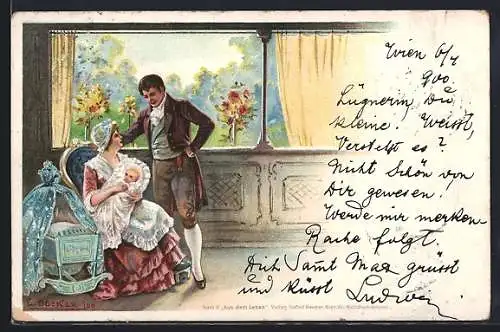 Wien 6/4
900.
Lügnerin, Du
kleine! Weisst,
Verstehst es?
Nicht Schön von
Dir gewesen!
Werde mir merken
Rache folgt.
Dich Samt Max grüsst
und küsst Ludwig
C. BECKER
Serie "Aus dem Leben" Verlag